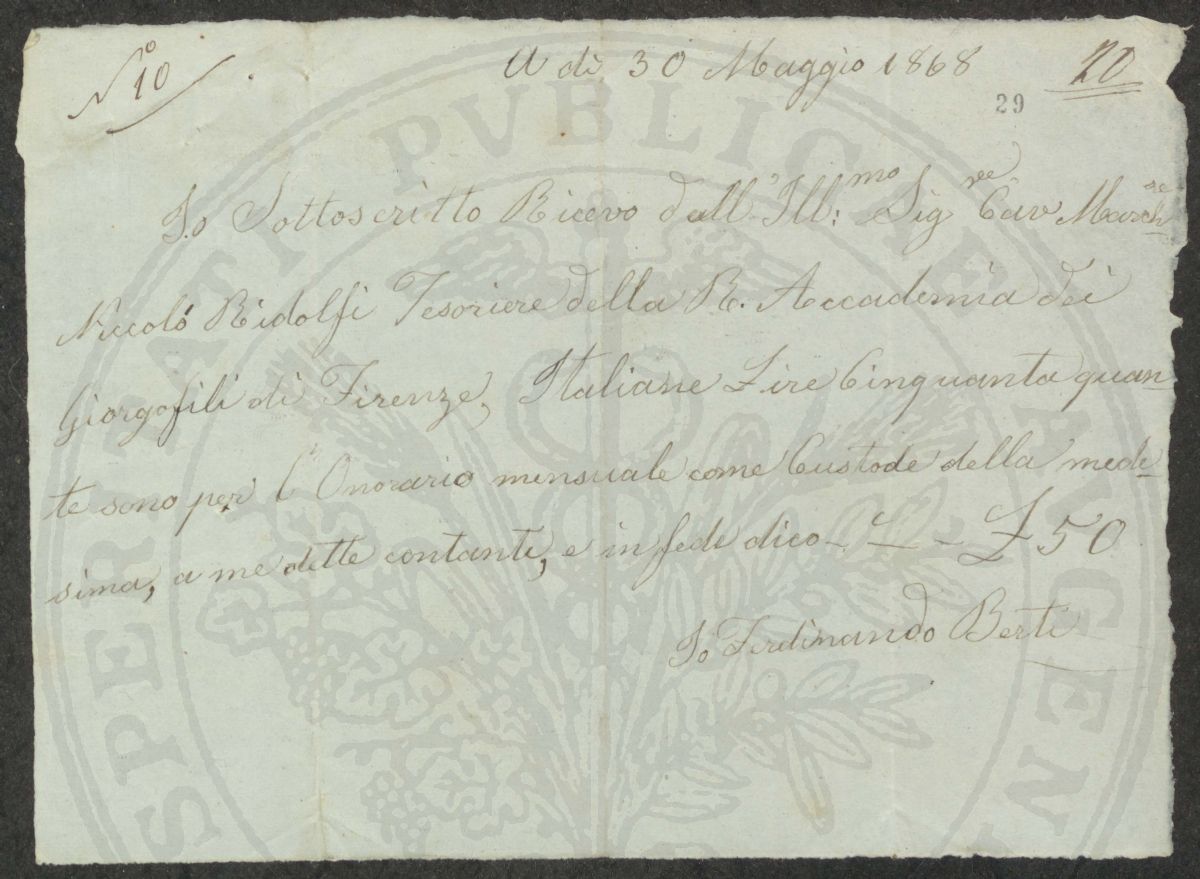 N.º 10
A dì 30 Maggio 1868
20
29
Io Sottoscritto Ricevo dall'Ill:mo Sigre Cav Marchse
Niccoló Ridolfi Tesoriere della R. Accademia dei
Giorgofili di Firenze, Italiane Lire Cinquanta quan
te sono per l'Onorario mensuale come Custode della mede
sima, a me dette contanti, e in fede dico - L - £ 50
Io Ferdinando Berti
PROSPERITATI PUBLICAE AUGENDAE